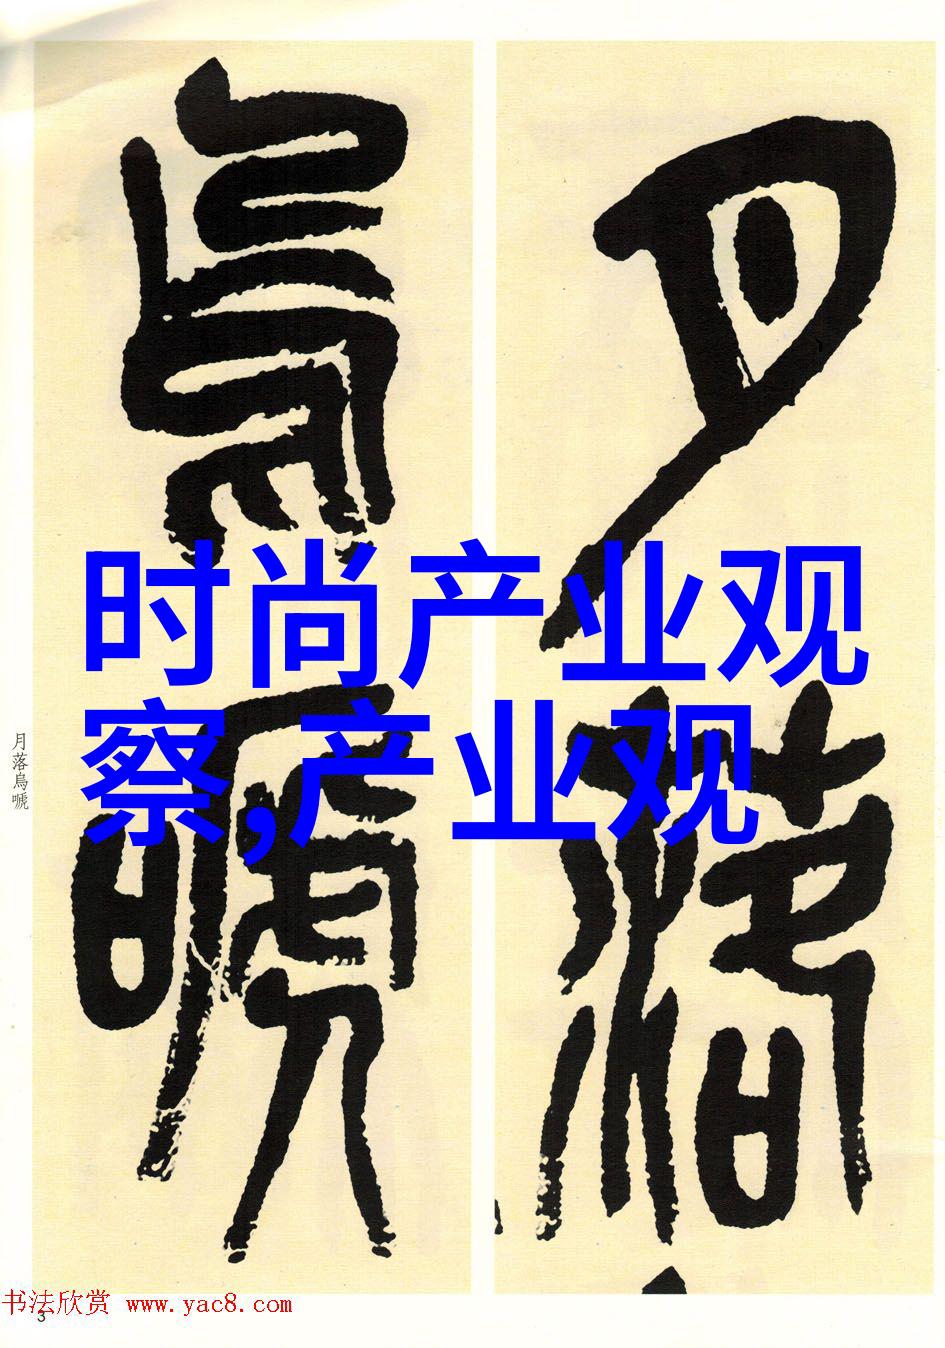 月落
烏嗁
时尚产业观
察,产业观
月落烏嗁
书法欣赏 www.yac8.com
3